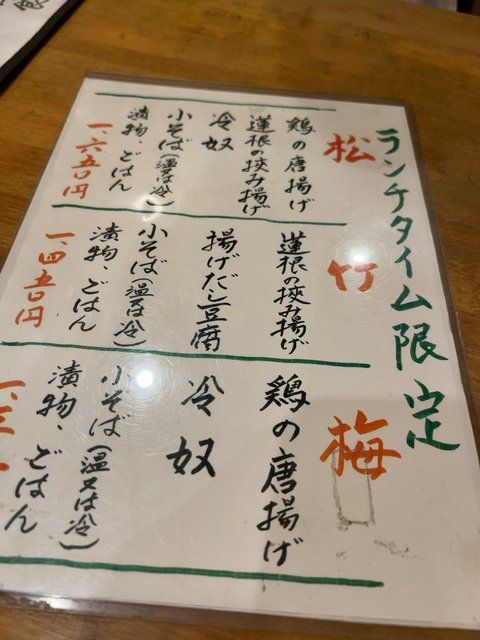 ランチタイム限定
松
鶏の唐揚げ
蓮根の挟み揚げ
冷奴
小そば(温又は冷)
漬物、ごはん
一、六五〇円
竹
蓮根の挟み揚げ
揚げだし豆腐
小そば(温又は冷)
漬物、ごはん
一、四五〇円
梅
鶏の唐揚げ
冷奴
小そば(温又は冷)
漬物、ごはん